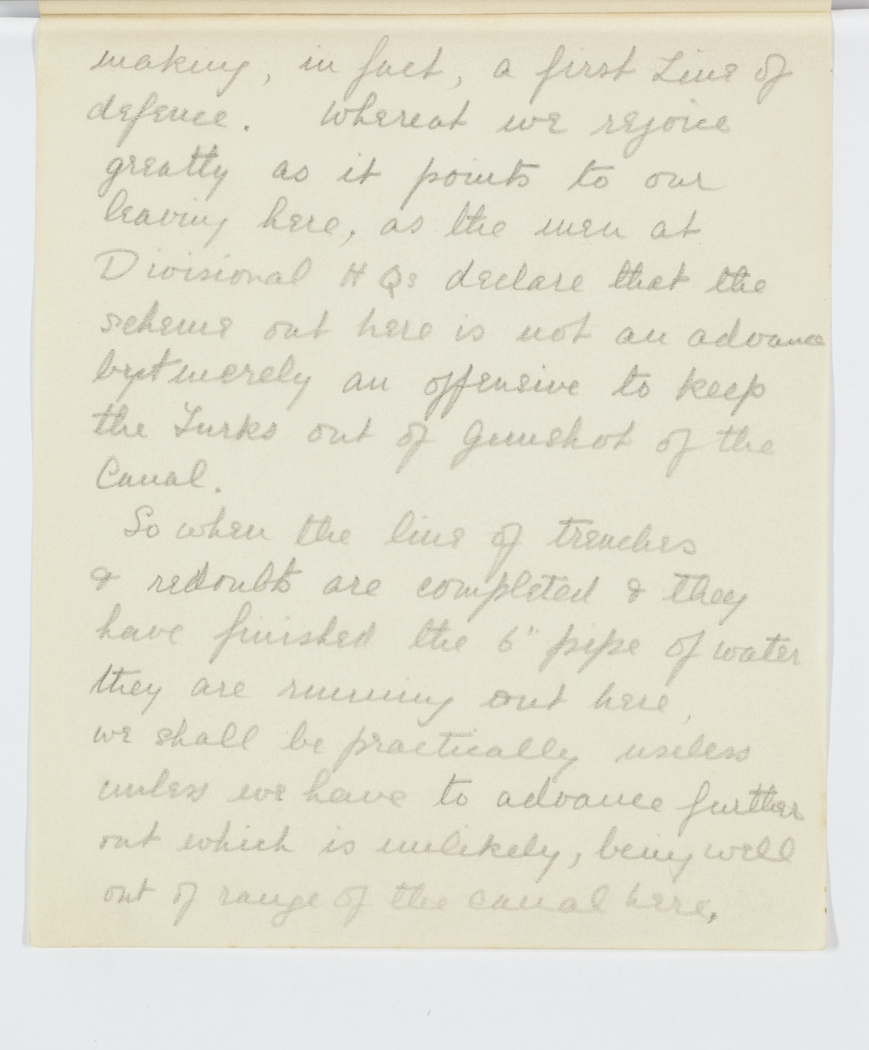 making, in fact, a first Line of
defence. Whereat we rejoice
greatly as it points to our
leaving here, as the men at
Divisional H Qs declare that the
scheme out here is not an advance
but merely an offensive to keep
the Turks out of Gunshot of the
Canal.
So when the line of trenches
& redoubts are completed & they
have finished the 6" pipe of water
they are running out here,
we shall be practically useless
unless we have to advance further
out which is unlikely, being well
out of range of the canal here.